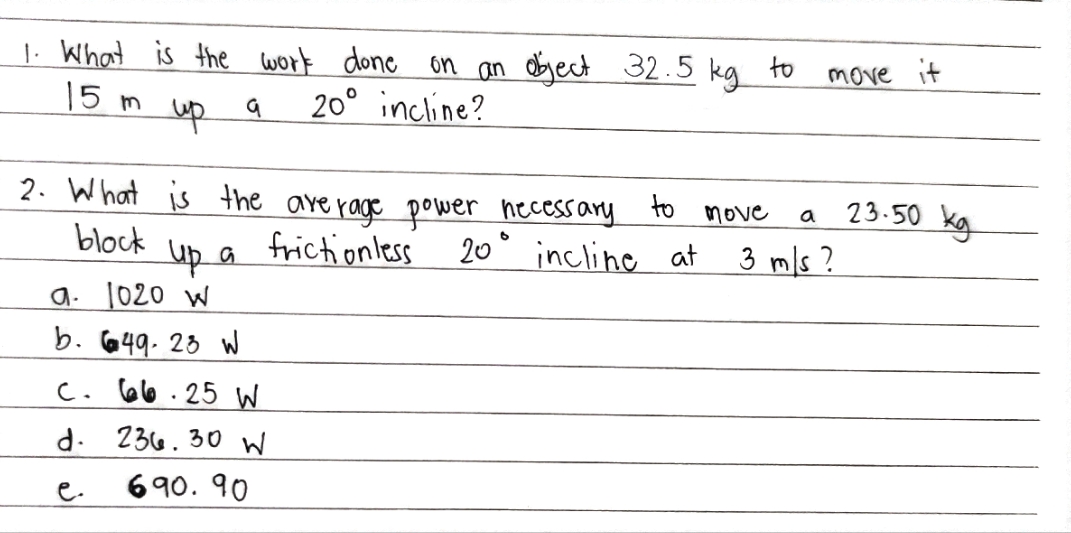 1. What is the work done on an object 32.5 kg to move it
15 m up a 20° incline?
2. What is the average power necessary to move a 23.50 kg
block up a frictionless 20° incline at 3 m/s?
a. 1020 W
b. 649.23 W
c. 66.25 W
d. 236.30 W
e. 690.90